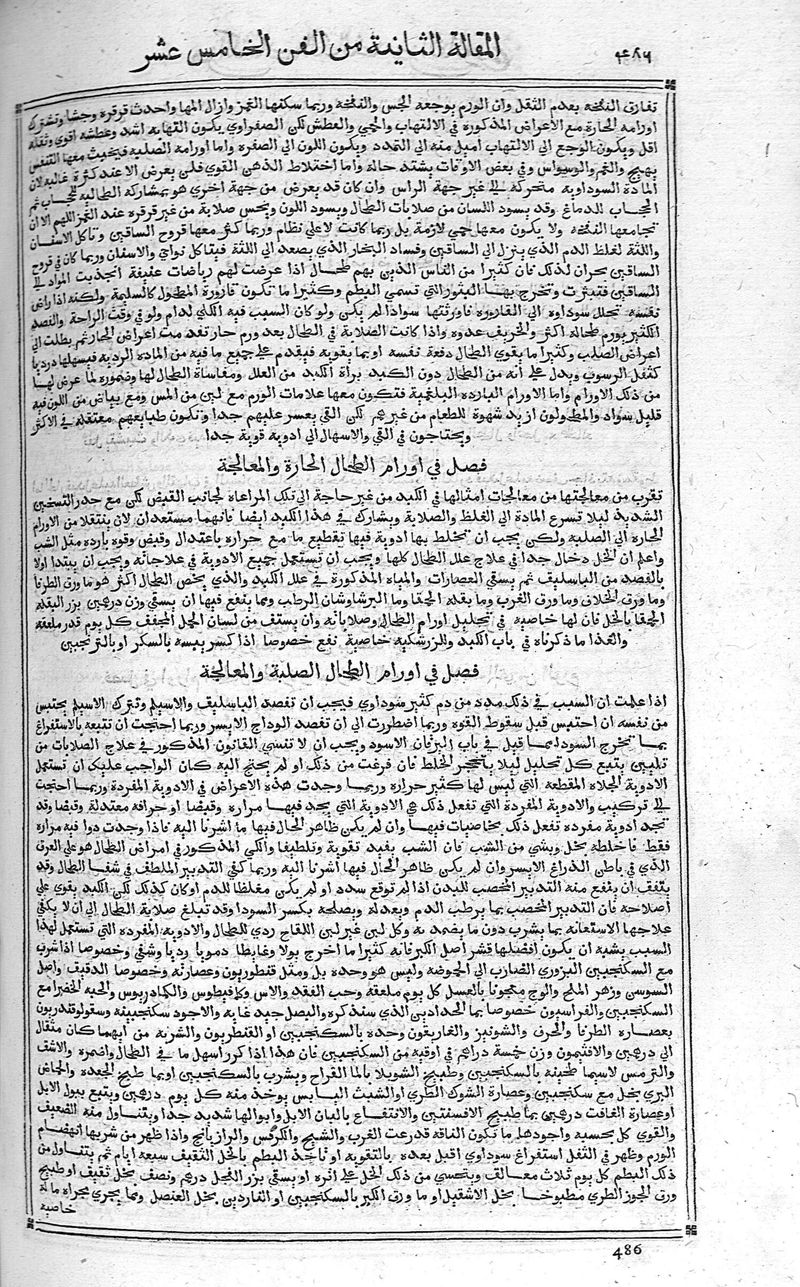 المقالة الثانية من الفن الخامس عشر
٤٨٦
تفارق النفخه بعدم الثقل وان الورم يوجعه الجس والنفخه وربما سكنها الغمز وازال المها واحدث قرقره وجشا وتشترك
اورامه الحارة مع الأعراض المذكوره في الالتهاب والحمي والعطش لكن الصفراوي يكون التهابه اشد وعطشه اقوي وثقله
اقل ويكون الوجع الي الالتهاب اميل منه الي التمدد ويكون اللون الي الصفره واما اورامه الصلبه فيخبث معها التنفس
يهيج والغم والوسواس وفي بعض الاوقات يشتد حاله واما اختلاط الذهن القوي فلن يعرض الا عند كثرة غالبه لان
المادة السوداويه متحركة في غير جهة الراس وان كان قد يعرض من جهة اخري هو بمشاركه الطحال للحجاب ثم
الحجاب للدماغ وقد يسود اللسان من صلابات الطحال ويسود اللون ويحس صلابة من غير قرقره عند الغمز اللهم الا ان
تجامعها النفخه ولا يكون معها حمي لازمة بل ربما كانت لا علي نظام وربما كثر معها قروح الساقين وتاكل الاسنان
واللثة لغلظ الدم الذي ينزل الي الساقين وفساد البخار الذي يصعد الي اللثة فيتاكل نواحي والاسنان وربما كان في قروح
الساقين بحران لذلك فان كثيرا من الناس الذين بهم طحال اذا عرضت لهم رياضات عنيفة انجذبت المواد الي
الساقين فتبثرت وتخرج بها البثور التي تسمي البطم وكثيرا ما تكون قارورة المطحول كالسليمة ولكنه اذا راض
نفسه تحلل سوداوه الي القاروره فاورثتها سوادا لم يكن ولو كان السبب فيه الكلي لدام ولو في وقت الراحة والفصد
الكثير يورم طحاله اكثر والخريف عدوه واذا كانت الصلابة في الطحال بعد ورم حار تقدمت اعراض الحار ثم بطلت الي
اعراض الصلب وكثيرا ما يقوي الطحال دفعة نفسه او بما يقويه فيقدم علي جميع ما فيه من المادة الرديه فيسهلها درديا
كثفل الرسوب ويدل علي أنه من الطحال دون الكبد براة الكبد من العلل ومقاساة الطحال لها وضموره لما عرض لها
من ذلك الاورام واما الاورام البارده البلغمية فتكون معها علامات الورم مع لين من المس ومع بياض من اللون فيه
قليل سواد والمطحولون ازيد شهوة للطعام من غيرهم لكن القي يعسر عليهم جدا وتكون طبايعهم معتقله في الاكثر
ويحتاجون في القي والاسهال الي ادوية قوية جدا
فصل في اورام الطحال الحارة والمعالجة
تقرب من معالجتها من معالجات امثالها في الكبد من غير حاجة الي تلك المراعاه لجانب القبض لكن مع حذر التسخين
الشديد ليلا تسرع المادة الي الغلظ والصلابة ويشارك في هذا الكبد ايضا فانهما مستعدان لان ينتقلا من الاورام
الحاره الي الصلبه ولكن يجب ان تخلط بها ادوية فيها تقطيع ما مع حراره باعتدال وقبض وقوه بارده مثل الشب
واعلم ان الخل دخال جدا في علاج علل الطحال كلها ويجب ان تستعمل جميع الادوية في علاجاته ويجب ان يبتدا اولا
بالفصد من الباسليق ثم يسقي العصارات والمياه المذكورة في علل الكبد والذي يخص الطحال اكثر هو ما ورق الطرفا
وما ورق الخلاف وما ورق الغرب وما بقله الحمقا وما البرشاوشان الرطب ومما ينفع فيها ان يسقي وزن درهمين بزر البقلة
الحمقا بالخل فان لها خاصية في تحليل اورام الطحال وصلاباته وان يستف من لسان الحمل المجفف كل يوم قدر ملعقه
والغذا ما ذكرناه في باب الكبد وللزرشكية خاصية نفع خصوصا اذا كسر يبسه بالسكر او بالترنجبين
فصل في اورام الطحال الصلبة والمعالجة
اذا علمت ان السبب في ذلك مدد من دم كثير سوداوي فيجب ان تفصد الباسليق والاسيلم وتترك الاسيلم يحتبس
من نفسه ان احتبس قبل سقوط القوه وربما اضطررت الي ان تفصد الوداج الايسر وربما احتجت ان تتبعه بالاستفراغ
بما تخرج السودا لما قيل في باب اليرقان الاسود ويجب ان لا تنسي القانون المذكور في علاج الصلابات من
تليين يتبع كل تحليل ليلا يتحجر الخلط فان فرغت من ذلك او لم يحتج اليه كان الواجب عليك ان تستعمل
الادوية الجلاه المقطعه التي ليس لها كثير حراره وربما وجدت هذه الاعراض في الادوية المفردة وربما احتجت
الي تركيب والادوية المفردة التي تفعل ذلك هي الادوية التي يجد فيها مراره وقبضا او حرافه معتدلة وقبضا وقد
تجد ادوية مفرده تفعل ذلك بخاصيات فيها وان لم يكن ظاهر الحال فيها ما اشرنا اليه فاذا وجدت دوا فيه مراره
فقط فاخلطه بخل وبشي من الشب فان الشب يفيد تقوية وتلطيفا والكي المذكور في امراض الطحال هو علي العرق
الذي في باطن الذراع الايسر وان لم يكن ظاهر الحال فيها أشرنا اليه وربما كفي التدبير الملطف في شفا الطحال وقد
يتفق ان ينفع منه التدبير المخصب للبدن اذا لم توقع سدد او لم يكن مغلظا للدم او كان كذلك لكن الكبد يقوي علي
اصلاحه فان التدبير المخصب بما يرطب الدم ويعدله ويصلحه يكسر السودا وقد تبلغ صلابة الطحال الي ان لا يكفي
علاجها الاستعانه بما يشرب دون ما يضمد به وكل لبن غير لبن اللقاح ردي للطحال والادوية المفرده التي تستعمل لهذا
السبب يشبه ان يكون افضلها قشر اصل الكبر فانه كثيرا ما اخرج بولا وغايطا دمويا رديا وشفي وخصوصا اذا شرب
مع السكنجبين البزوري الضارب الي الحموضة وليس هو وحده بل ومثل قنطوريون وعصارته وخصوصا الدقيق واصل
السوسن وزهر الملح والوج معجونا بالعسل كل يوم ملعقه وحب الفقد والاس وكمافيطوس والكمادريوس والحبه الخضرا مع
السكنجبين والفراسيون خصوصا بما الحدادين الذي سنذكره والبصل جيد غايه والاجود سكنجبينه وسقولوقندريون
بعصاره الطرفا والحرف والشونيز والغاريقون وحده بالسكنجبين او القنطريون والشربه من ايهما كان مثقال
الي درهمين والافثيمون وزن خمسة دراهم في اوقيه من السكنجبين فان هذا اذا كرر اسهل ما في الطحال واضمره والاشق
والترمس لاسيما طحينه بالسكنجبين وطبيخ الشوبلا بالما القراح ويشرب بالسكنجبين او بما طبيخ الجعده والحماض
البري بخل مع سكنجبين وعصارة الشوك الطري او الشبث اليابس يوخذ منه كل يوم درهمين ويتبع ببول الابل
او عصارة الغافت درهمين بما طبيخ الافسنتين والانتفاع بالبان الابل وابوالها شديد جدا ويتناول منه الضعيف
والقوي كل بحسبه واجودها ما تكون الناقه قد رعت الغرب والشيح والكرفس والرازيانج واذا ظهر من شربها انهضام
الورم وظهر في الثفل استفراغ سوداوي اقبل بعده بالتقويه او تاخذ البطم بالخل الثقيف سبعه ايام ثم يتناول من
ذلك البطم كل يوم ثلاث معالق ويتحسي من ذلك الخل علي اثره او يسقي بزر الفجل درهم ونصف بخل ثقيف او طبيخ
ورق الجوز الطري مطبوخا بخل الاشقيل او ما ورق الكبر بالسكنجبين او الفاردين بخل العنصل ومما يجري مجراه ما له
خاصيه
486